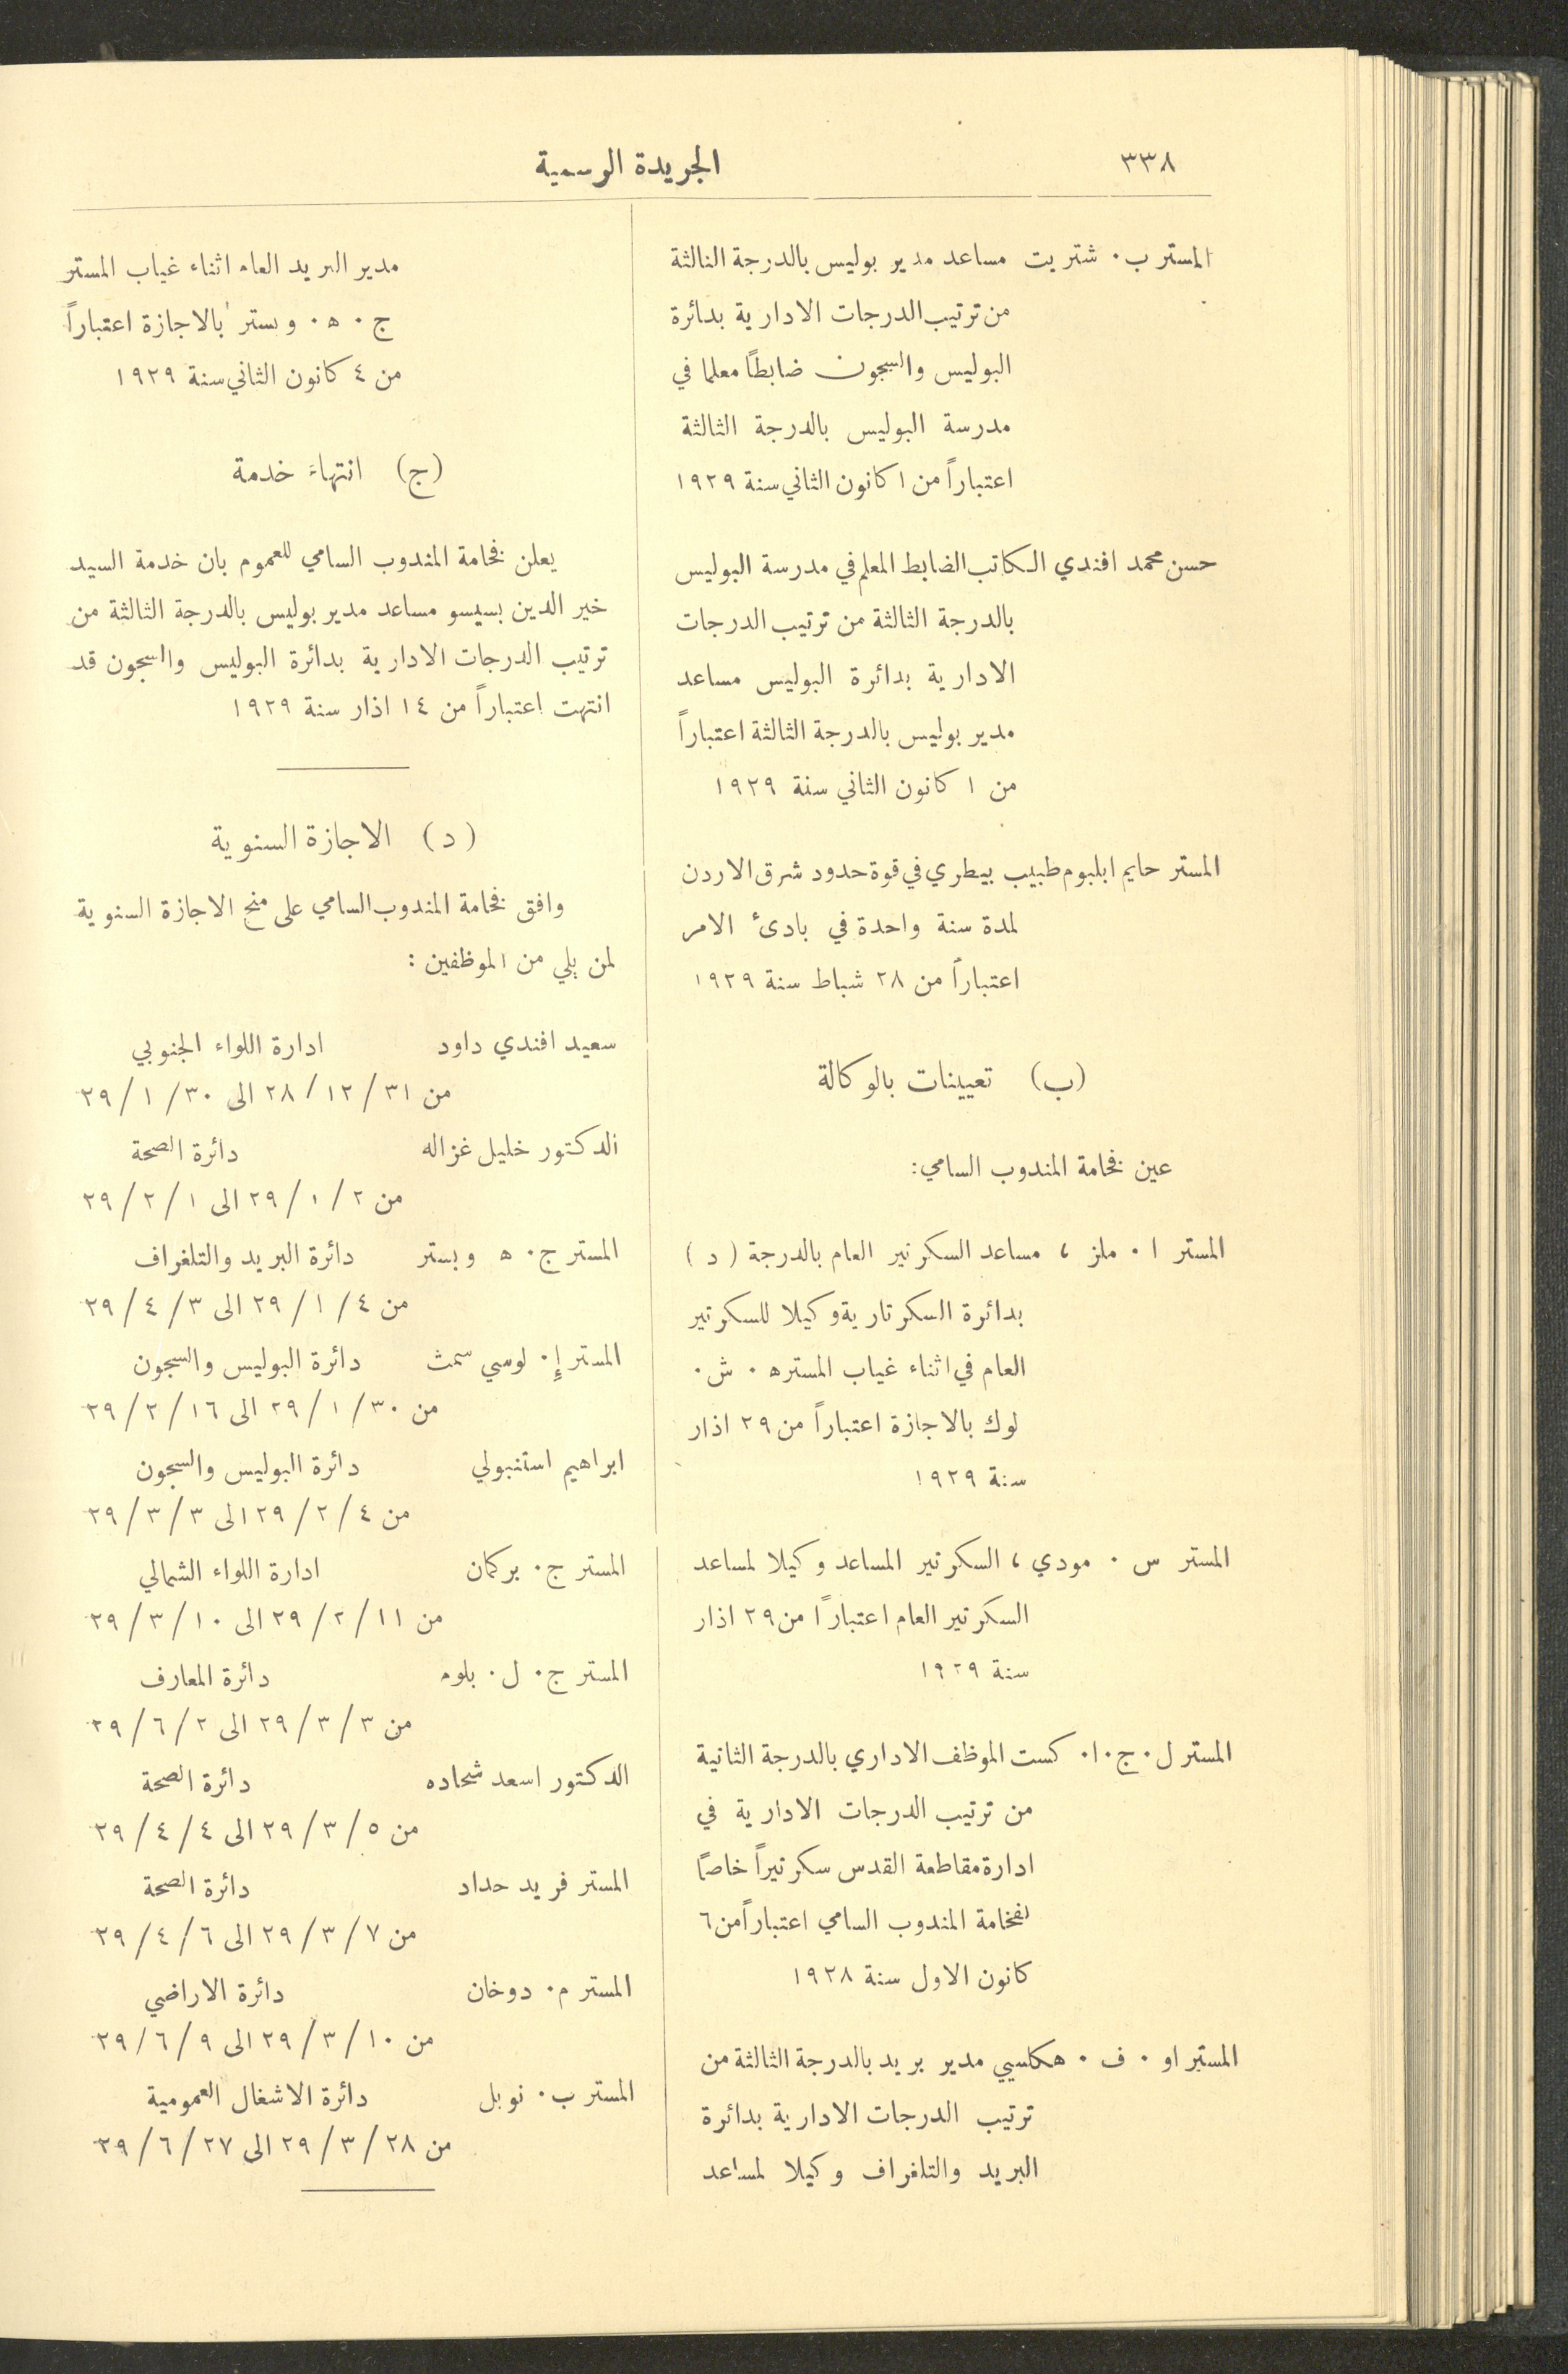 ٣٣٨
الجريدة الرسمية
المستر ب. شتريت مساعد مدير بوليس بالدرجة الثالثة
من ترتيب الدرجات الادارية بدائرة
البوليس والسجون ضابطاً معلما في
مدرسة البوليس بالدرجة الثالثة
اعتباراً من ١ كانون الثاني سنة ١٩٢٩
حسن محمد افندي الكاتب الضابط المعلم في مدرسة البوليس
بالدرجة الثالثة من ترتيب الدرجات
الادارية بدائرة البوليس مساعد
مدير بوليس بالدرجة الثالثة اعتباراً
من ١ كانون الثاني سنة ١٩٢٩
المستر حايم ابلبوم طبيب بيطري في قوة حدود شرق الاردن
لمدة سنة واحدة في بادىء الامر
اعتباراً من ٢٨ شباط سنة ١٩٢٩
(ب) تعيينات بالوكالة
عين فخامة المندوب السامي:
المستر ا. ملز، مساعد السكرتير العام بالدرجة (د)
بدائرة السكرتارية وكيلا للسكرتير
العام في اثناء غياب المستر ه. ش.
لوك بالاجازة اعتباراً من ٢٩ اذار
سنة ١٩٢٩
المستر س. مودي، السكرتير المساعد وكيلا لمساعد
السكرتير العام اعتباراً من ٢٩ اذار
سنة ١٩٢٩
المستر ل. ج. ا. كست الموظف الاداري بالدرجة الثانية
من ترتيب الدرجات الادارية في
ادارة مقاطعة القدس سكرتيراً خاصاً
لفخامة المندوب السامي اعتباراً من ٦
كانون الاول سنة ١٩٢٨
المستر او. ف. هكاسيي مدير بريد بالدرجة الثالثة من
ترتيب الدرجات الادارية بدائرة
البريد والتلغراف وكيلا لمساعد
مدير البريد العام اثناء غياب المستر
ج. ه. وبستر بالاجازة اعتباراً
من ٤ كانون الثاني سنة ١٩٢٩
(ج) انتهاء خدمة
يعلن فخامة المندوب السامي للعموم بان خدمة السيد
خير الدين بسيسو مساعد مدير بوليس بالدرجة الثالثة من
ترتيب الدرجات الادارية بدائرة البوليس والسجون قد
انتهت اعتباراً من ١٤ اذار سنة ١٩٢٩
(د) الاجازة السنوية
وافق فخامة المندوب السامي على منح الاجازة السنوية
لمن يلي من الموظفين:
سعيد افندي داود ادارة اللواء الجنوبي
من ٣١/ ١٢/ ٢٨ الى ٣٠/ ١/ ٢٩
الدكتور خليل غزاله دائرة الصحة
من ٢/ ١/ ٢٩ الى ١/ ٢/ ٢٩
المستر ج. ه وبستر دائرة البريد والتلغراف
من ٤/ ١/ ٢٩ الى ٣/ ٤/ ٢٩
المستر إ. لوسي سمث دائرة البوليس والسجون
من ٣٠/ ١/ ٢٩ الى ١٦/ ٢/ ٢٩
ابراهيم استنبولي دائرة البوليس والسجون
من ٤/ ٢/ ٢٩ الى ٣/ ٣/ ٢٩
المستر ج. بركمان ادارة اللواء الشمالي
من ١١/ ٢/ ٢٩ الى ١٠/ ٣/ ٢٩
المستر ج. ل. بلوم دائرة المعارف
من ٣/ ٣/ ٢٩ الى ٢/ ٦/ ٢٩
الدكتور اسعد شحاده دائرة الصحة
من ٥/ ٣/ ٢٩ الى ٤/ ٤/ ٢٩
المستر فريد حداد دائرة الصحة
من ٧/ ٣/ ٢٩ الى ٦/ ٤/ ٢٩
المستر م. دوخان دائرة الاراضي
من ١٠/ ٣/ ٢٩ الى ٩/ ٦/ ٢٩
المستر ب. نوبل دائرة الاشغال العمومية
من ٢٨/ ٣/ ٢٩ الى ٢٧/ ٦/ ٢٩